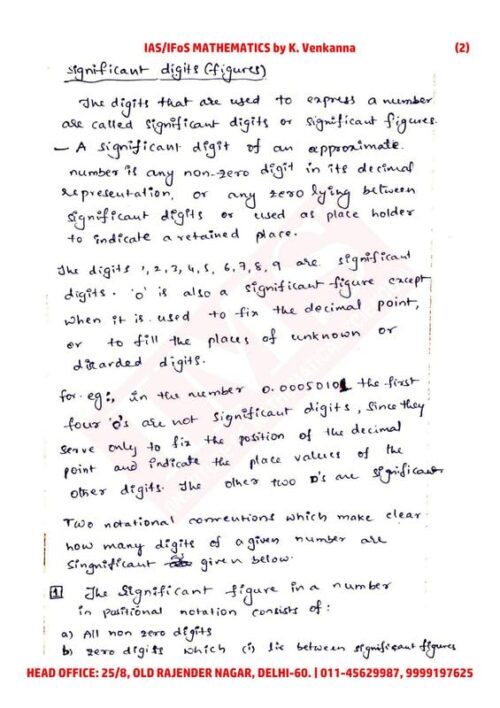 IAS/IFoS MATHEMATICS by K. Venkanna (2)
Significant digits (figures)
The digits that are used to express a number
are called significant digits or significant figures.
— A significant digit of an approximate
number is any non-zero digit in its decimal
representation, or any zero lying between
significant digits or used as place holder
to indicate a retained place.
The digits 1, 2, 3, 4, 5, 6, 7, 8, 9 are significant
digits. '0' is also a significant figure except
when it is used to fix the decimal point,
or to fill the places of unknown or
discarded digits.
for eg:, in the number 0.00050101 the first
four '0's are not significant digits, since they
serve only to fix the position of the decimal
point and indicate the place values of the
other digits. The other two 0's are significant
Two notational conventions which make clear
how many digits of a given number are
Singnificant given below.
1 The Significant figure in a number
in positional notation consists of:
a) All non zero digits
b) zero digits which (i) lie between significant figures
HEAD OFFICE: 25/8, OLD RAJENDER NAGAR, DELHI-60. | 011-45629987, 9999197625